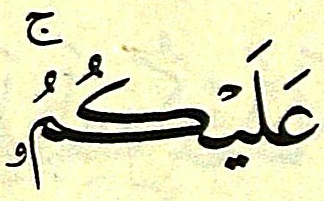 عَلَيْكُمُۥ ۚ